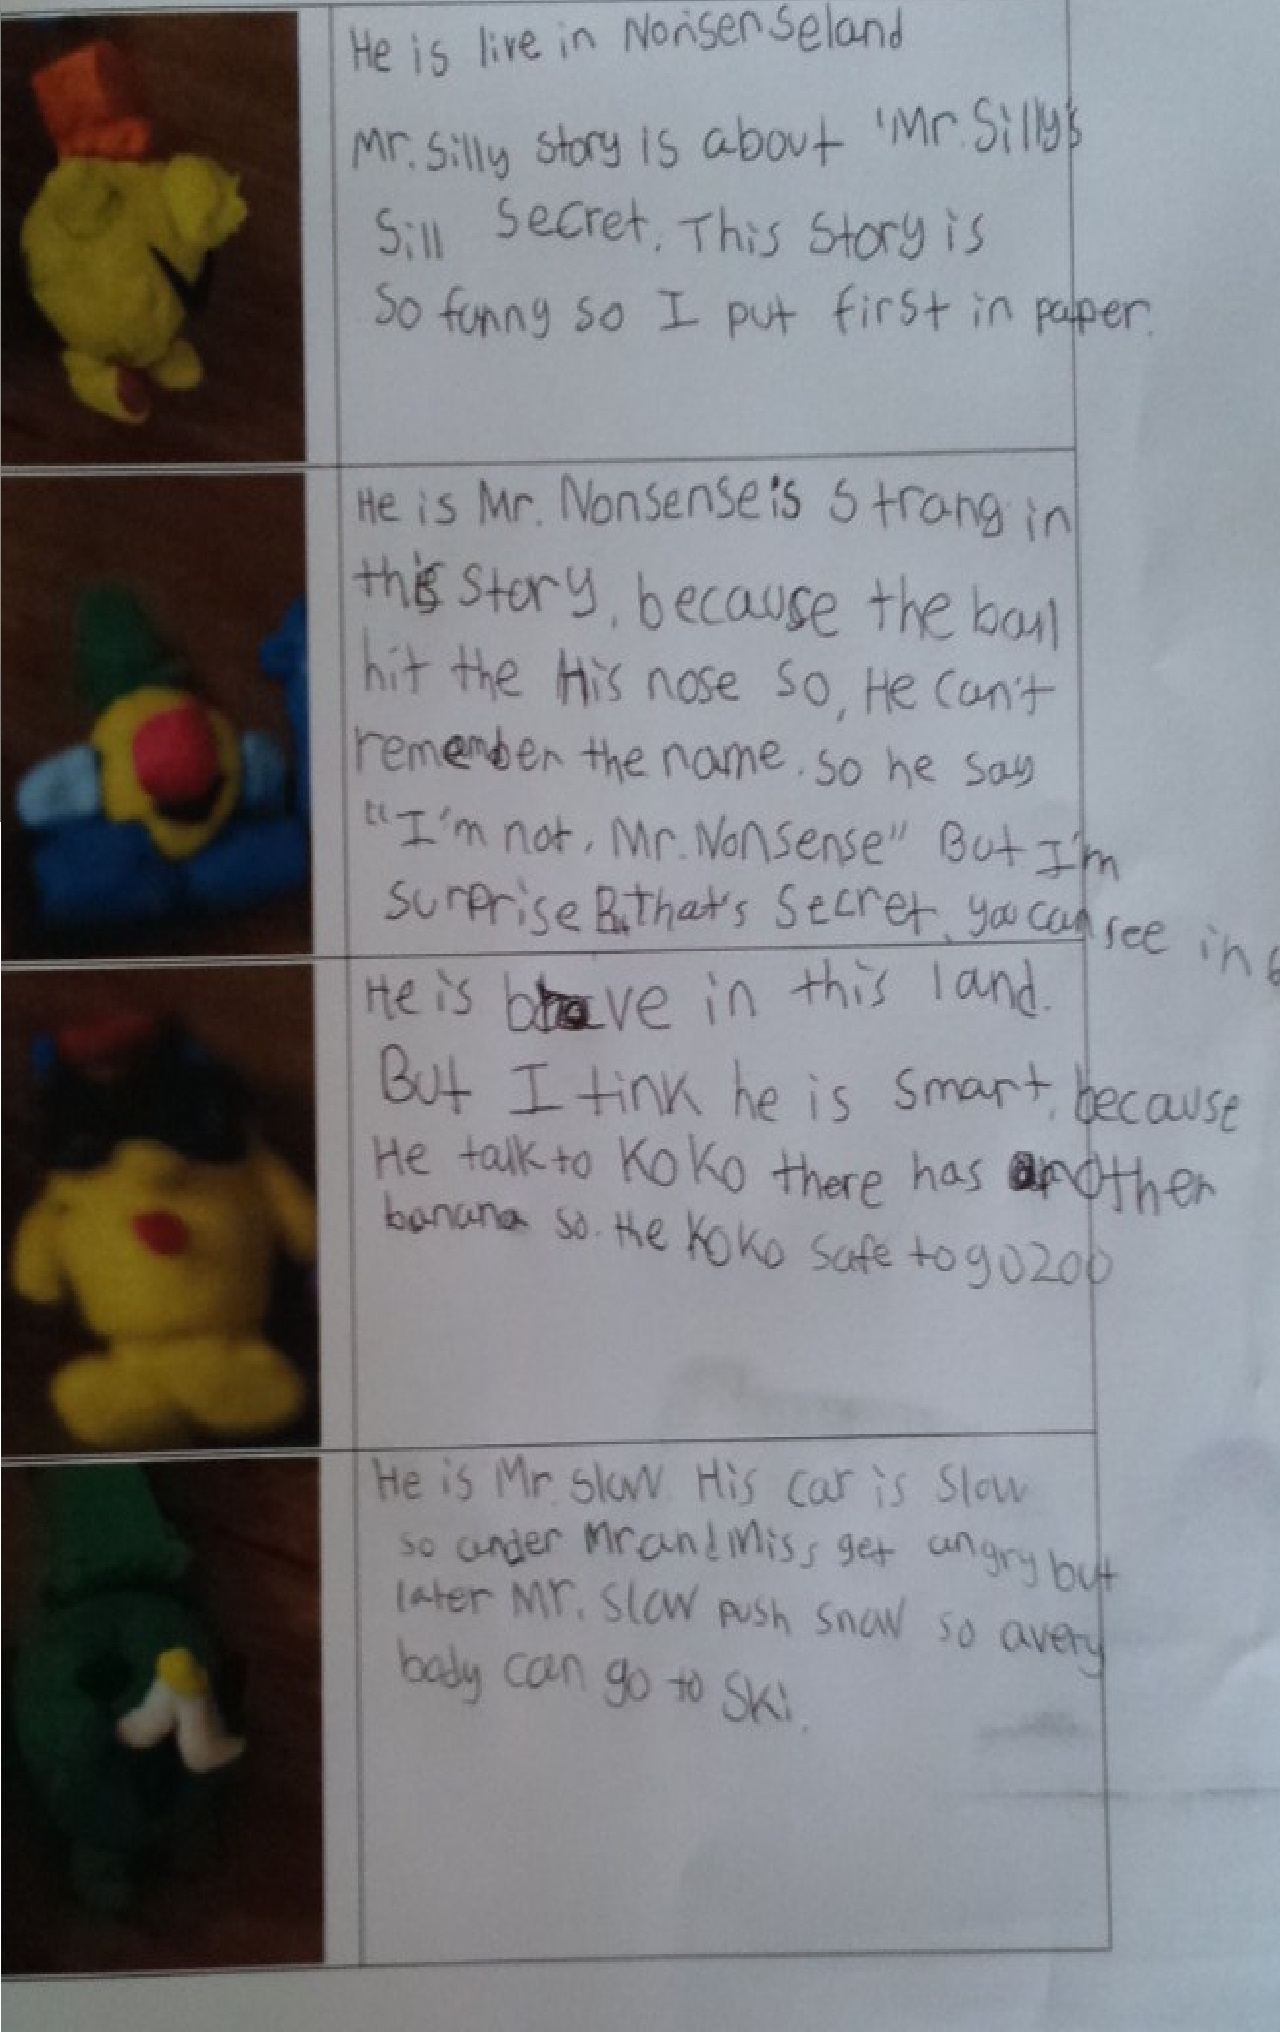 He is live in Nonsenseland
Mr. Silly story is about 'Mr. Silly's
Sill Secret. This Story is
So funny so I put first in paper.
He is Mr. Nonsense is Strang in
this Story, because the ball
hit the His nose so, He can't
remember the name. so he say
"I'm not, Mr. Nonsense" But I'm
surprise B. that's Secret. you can see in
He is brave in this land.
But I tink he is smart, because
He talk to KoKo there has another
banana so. the KoKo safe to go zoo
He is Mr. Slow. His car is slow
so ander Mr and Miss get angry but
later Mr. Slow push snow so avery
body can go to Ski.